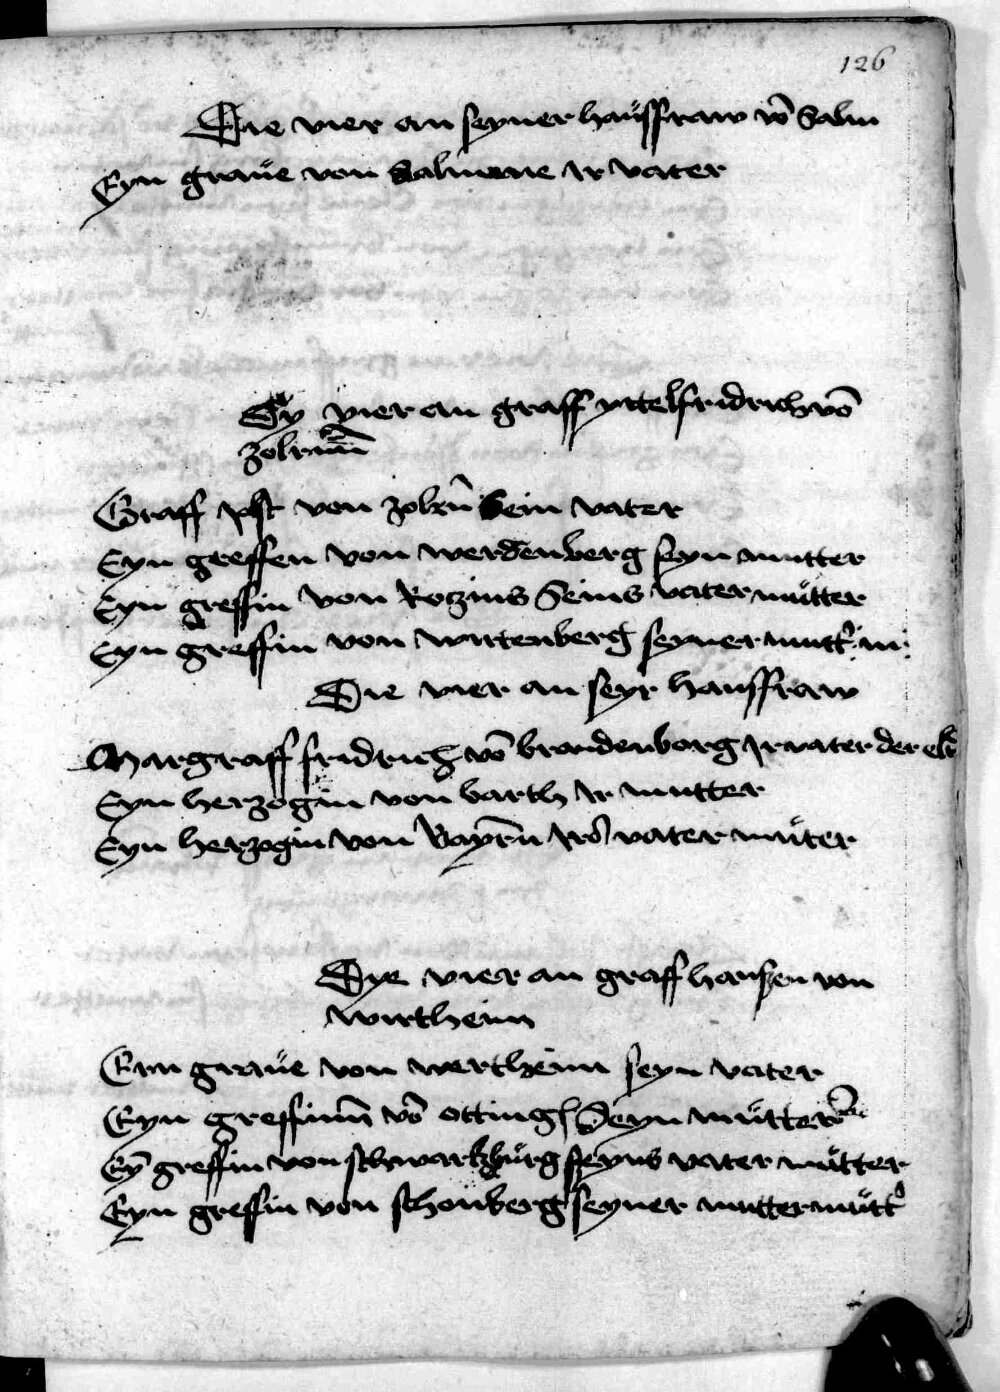 126
Die vier an seyner haůsfraw vō Salm
Eyn graůe von Salmene Ir vater
Dy vier an graff ytelfridrich vō
zolrnn
Graff Jost von zolrn Sein vater
Eyn greffen von werdenberg seyn mutter
Eyn greffin von Rozius Seins vater můtter
Eyn greffin von wirtenberg seyner mutt' m
Die vier an seyr hausfraw
Margraff fridrich vō brandenborg Ir vater der elt
Eyn herzogin von barth Ir mutter
Eyn herzogin von Bayrn Irs vater můter
Dye vier an graff hansen von
wirtheim
Ein graůe von wertheim seyn vater
Eyn greffinn vō otting Seyn můtter
Eȳ greffin von schwarkbůrg seyns vater můtter
Eyn greffin von schonberg seyner mutter můtt'